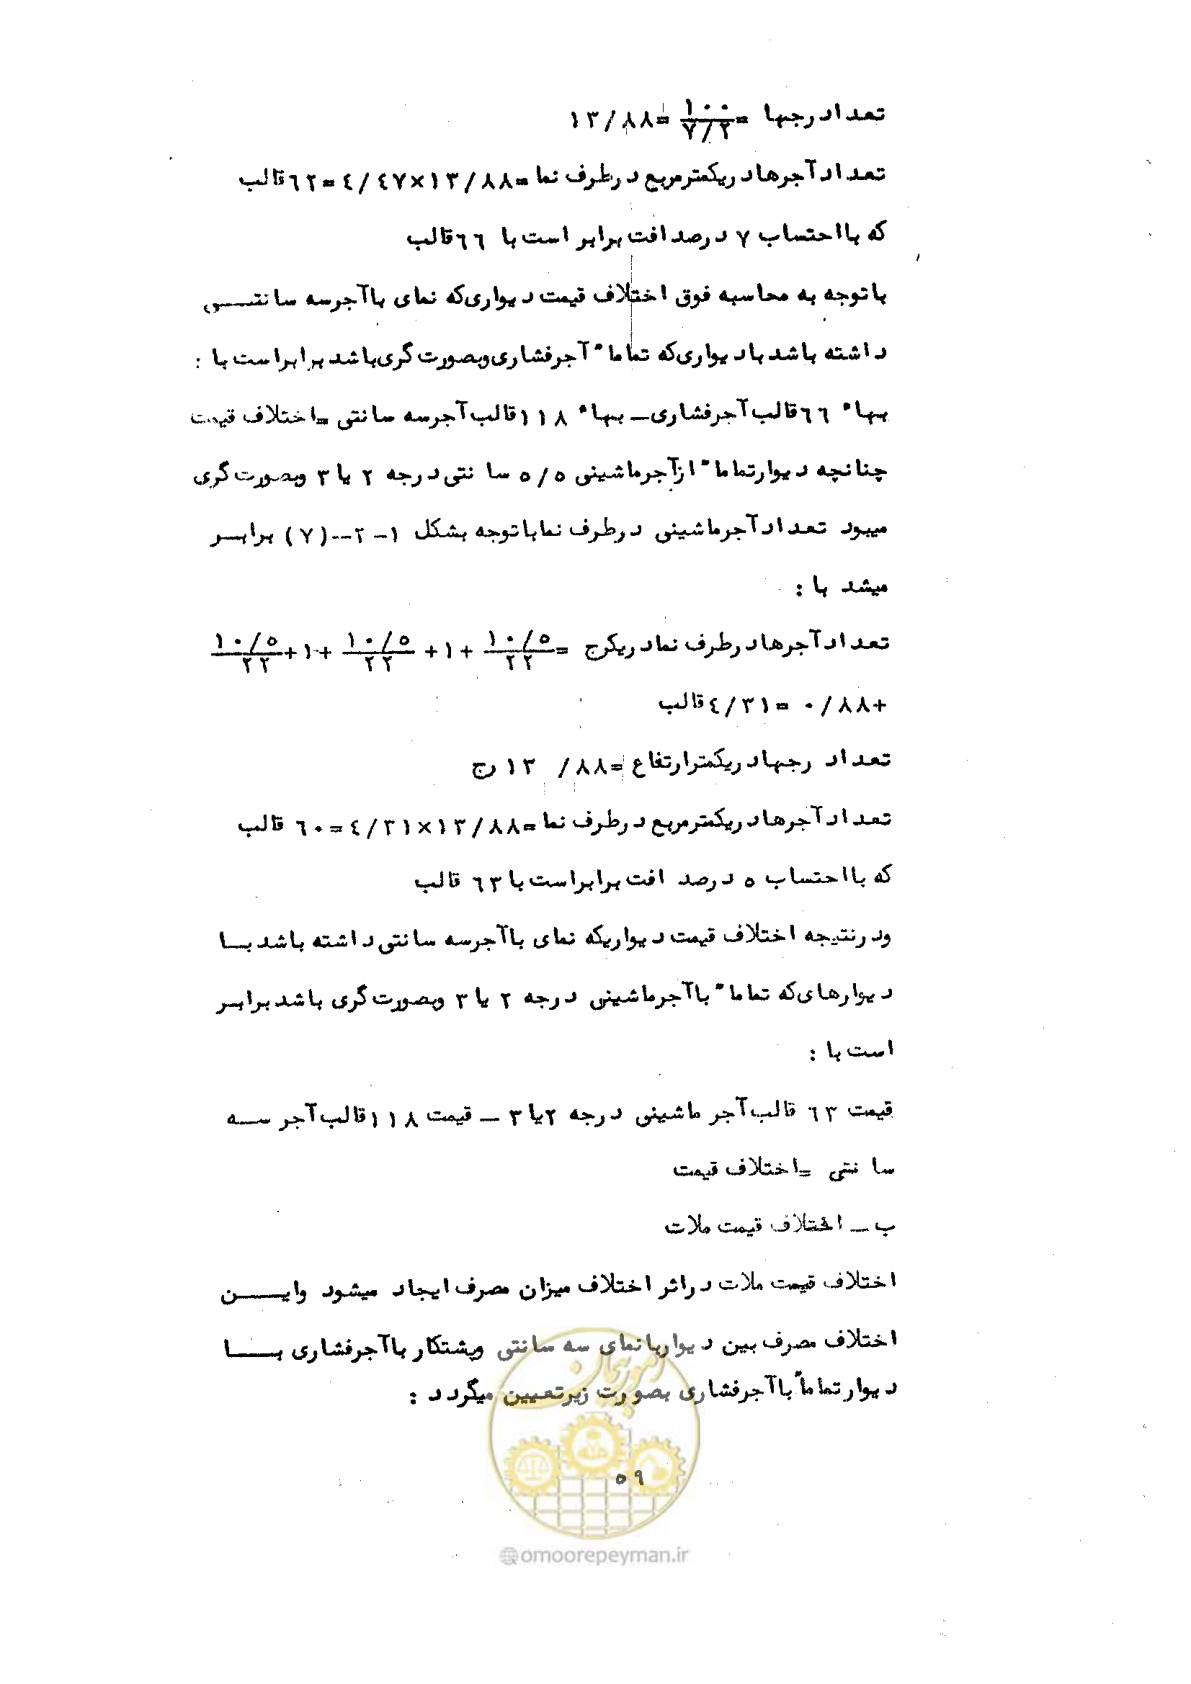 تعداد رجها = ۱۰۰/۷/۲ = ۱۳/۸۸
تعداد آجرها در یکمترمربع در طرف نما = ۱۳/۸۸×۴/۴۷=۶۲ قالب
که با احتساب ۷ درصد افت برابر است با ۶۶ قالب
با توجه به محاسبه فوق اختلاف قیمت دیواری‌که نمای با آجر سه سانتی
داشته باشد با دیواری‌که تماما" آجر فشاری و بصورت گری باشد برابر است با :
بهاء ۶۶ قالب آجر فشاری ـ بهاء ۱۱۸ قالب آجر سه سانتی = اختلاف قیمت
چنانچه دیوار تماما" از آجر ماشینی ۵/۵ سانتی درجه ۲ یا ۳ و بصورت گری
میبود تعداد آجر ماشینی در طرف نما با توجه بشکل ۱-۲--(۷) برابر
میشد با :
تعداد آجرها در طرف نما در یکرج = ۱۰/۵/۲۲ +۱+ ۱۰/۵/۲۲ +۱+ ۱۰/۵/۲۲
+۰/۸۸ =۴/۳۱ قالب
تعداد رجها در یکمتر ارتفاع =۱۳/۸۸ رج
تعداد آجرها در یکمترمربع در طرف نما =۱۳/۸۸×۴/۳۱=۶۰ قالب
که با احتساب ۵ درصد افت برابر است با ۶۳ قالب
و در نتیجه اختلاف قیمت دیواریکه نمای با آجر سه سانتی داشته باشد با
دیوارهای‌که تماما" با آجر ماشینی درجه ۲ یا ۳ و بصورت گری باشد برابر
است با :
قیمت ۶۳ قالب آجر ماشینی درجه ۲ یا ۳ ـ قیمت ۱۱۸ قالب آجر سه
سانتی = اختلاف قیمت
ب ـ اختلاف قیمت ملات
اختلاف قیمت ملات در اثر اختلاف میزان مصرف ایجاد میشود و این
اختلاف مصرف بین دیوار با نمای سه سانتی و پشتکار با آجر فشاری با
دیوار تماماً با آجر فشاری بصورت زیر تعیین میگردد :
امور پیمان
۵۹
@omoorepeyman.ir